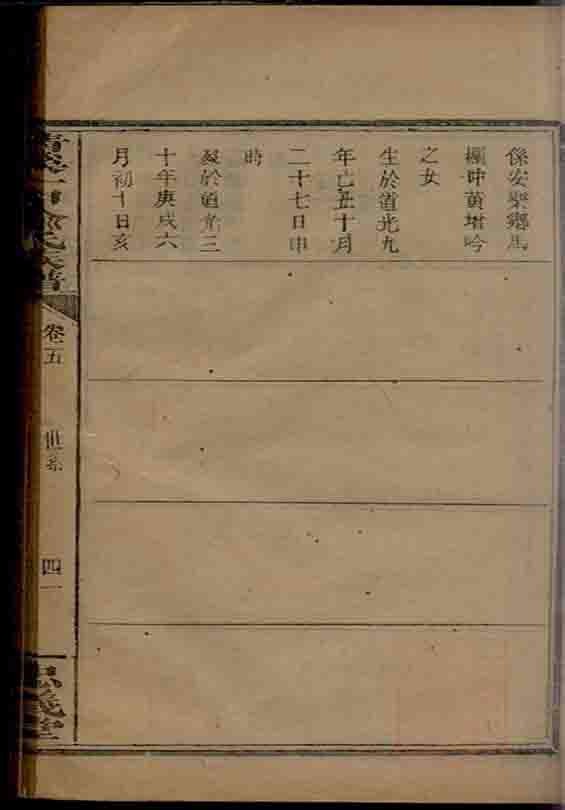 係安樂鄉馬
頭畔黄堦吟
之女
生於道光九
年己丑十月
二十七日申
時
歿於道光三
十年庚戌六
月初十日亥
氏族譜
卷五
世系
四一
忠義堂